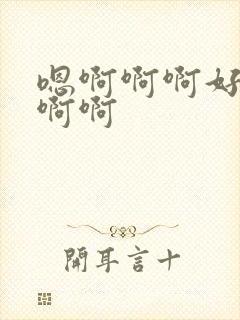 嗯啊啊啊好
啊啊
開耳言十